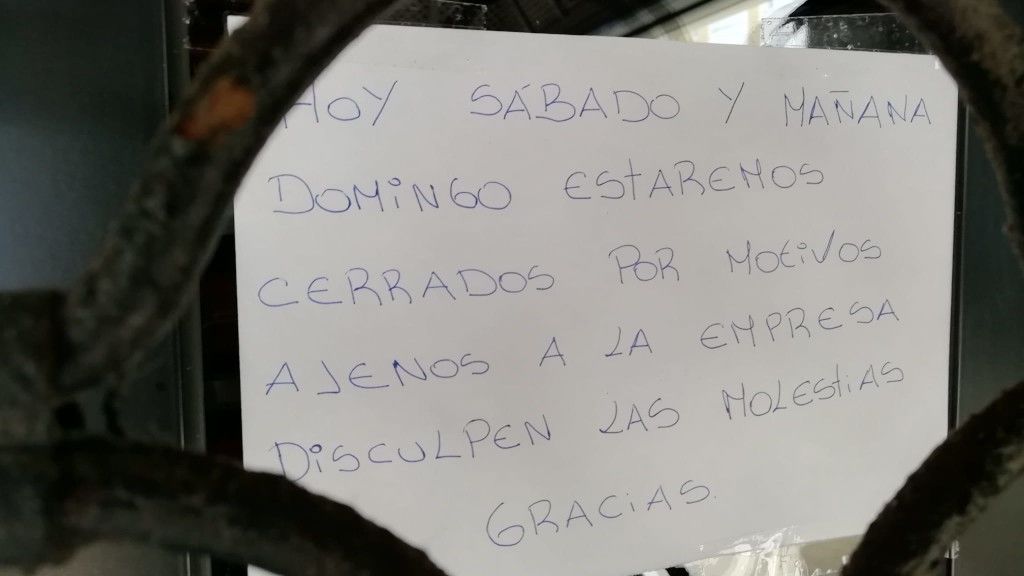 HOY SÁBADO Y MAÑANA
DOMINGO ESTAREMOS
CERRADOS POR MOTIVOS
AJENOS A LA EMPRESA
DISCULPEN LAS MOLESTIAS
GRACIAS.